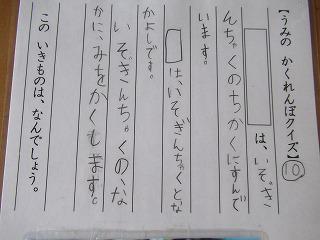 【うみの かくれんぼクイズ】⑩
は、いそぎ
んちゃくのちかくにすんで
います。
はいそぎんちゃくとな
かよしです。
いそぎんちゃくの、な
かに、みをかくします。
この いきものは、なんでしょう。